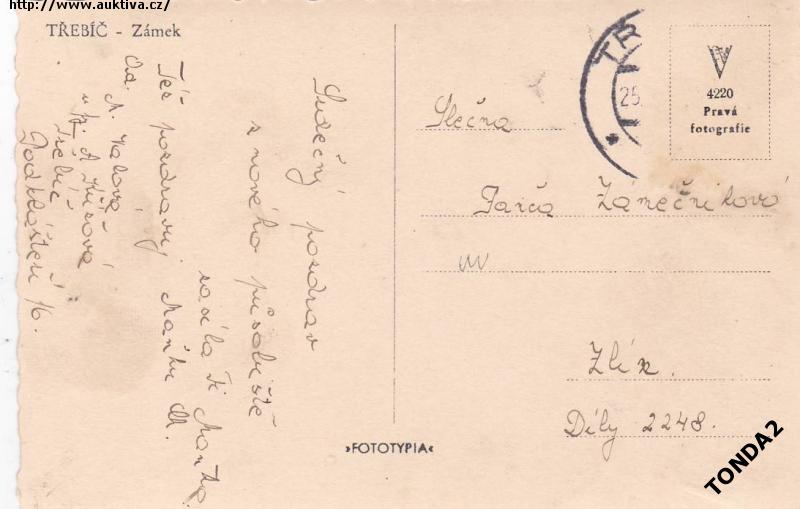 http://www.auktiva.cz/
TŘEBÍČ - Zámek
Srdečný pozdrav
s nového působiště
zasílá Ti Mařka.
Též pozdravuj Mařku M.
Od.
A. Valová
u p. A
Třebíč
Podklášteří 16.
TR
25.
4220
Pravá
fotografie
Slečna
Jarča Zámečníková
ve
Zlíně.
Díly 2248.
»FOTOTYPIA«
TONDA2